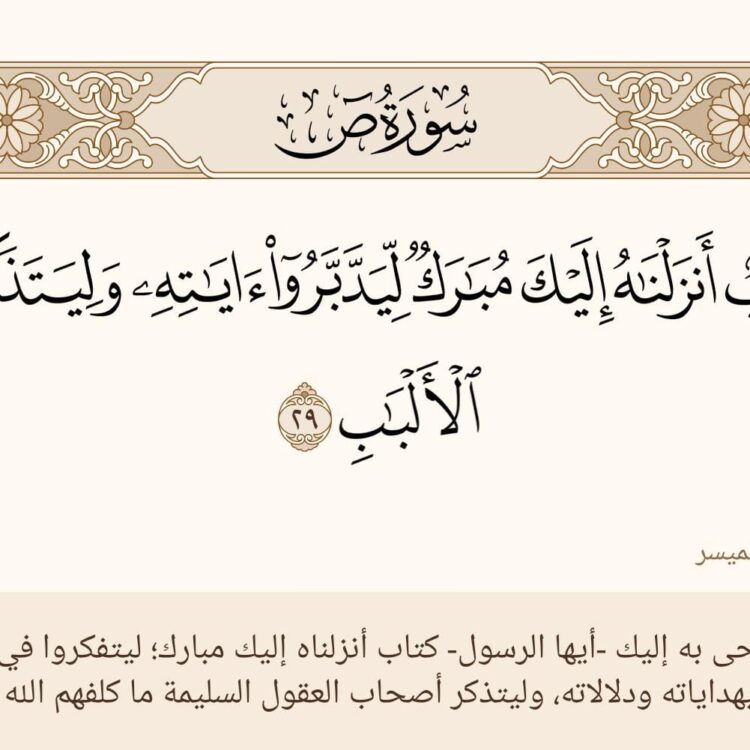 سُورَةُ صٓ
أَنزَلۡنَٰهُ إِلَيۡكَ مُبَٰرَكٞ لِّيَدَّبَّرُوٓاْ ءَايَٰتِهِۦ
ٱلۡأَلۡبَٰبِ ٢٩
به إليك -أيها الرسول- كتاب أنزلناه إليك مبارك؛ ليتفكروا في
ودلالاته، وليتذكر أصحاب العقول السليمة ما كلفهم الله